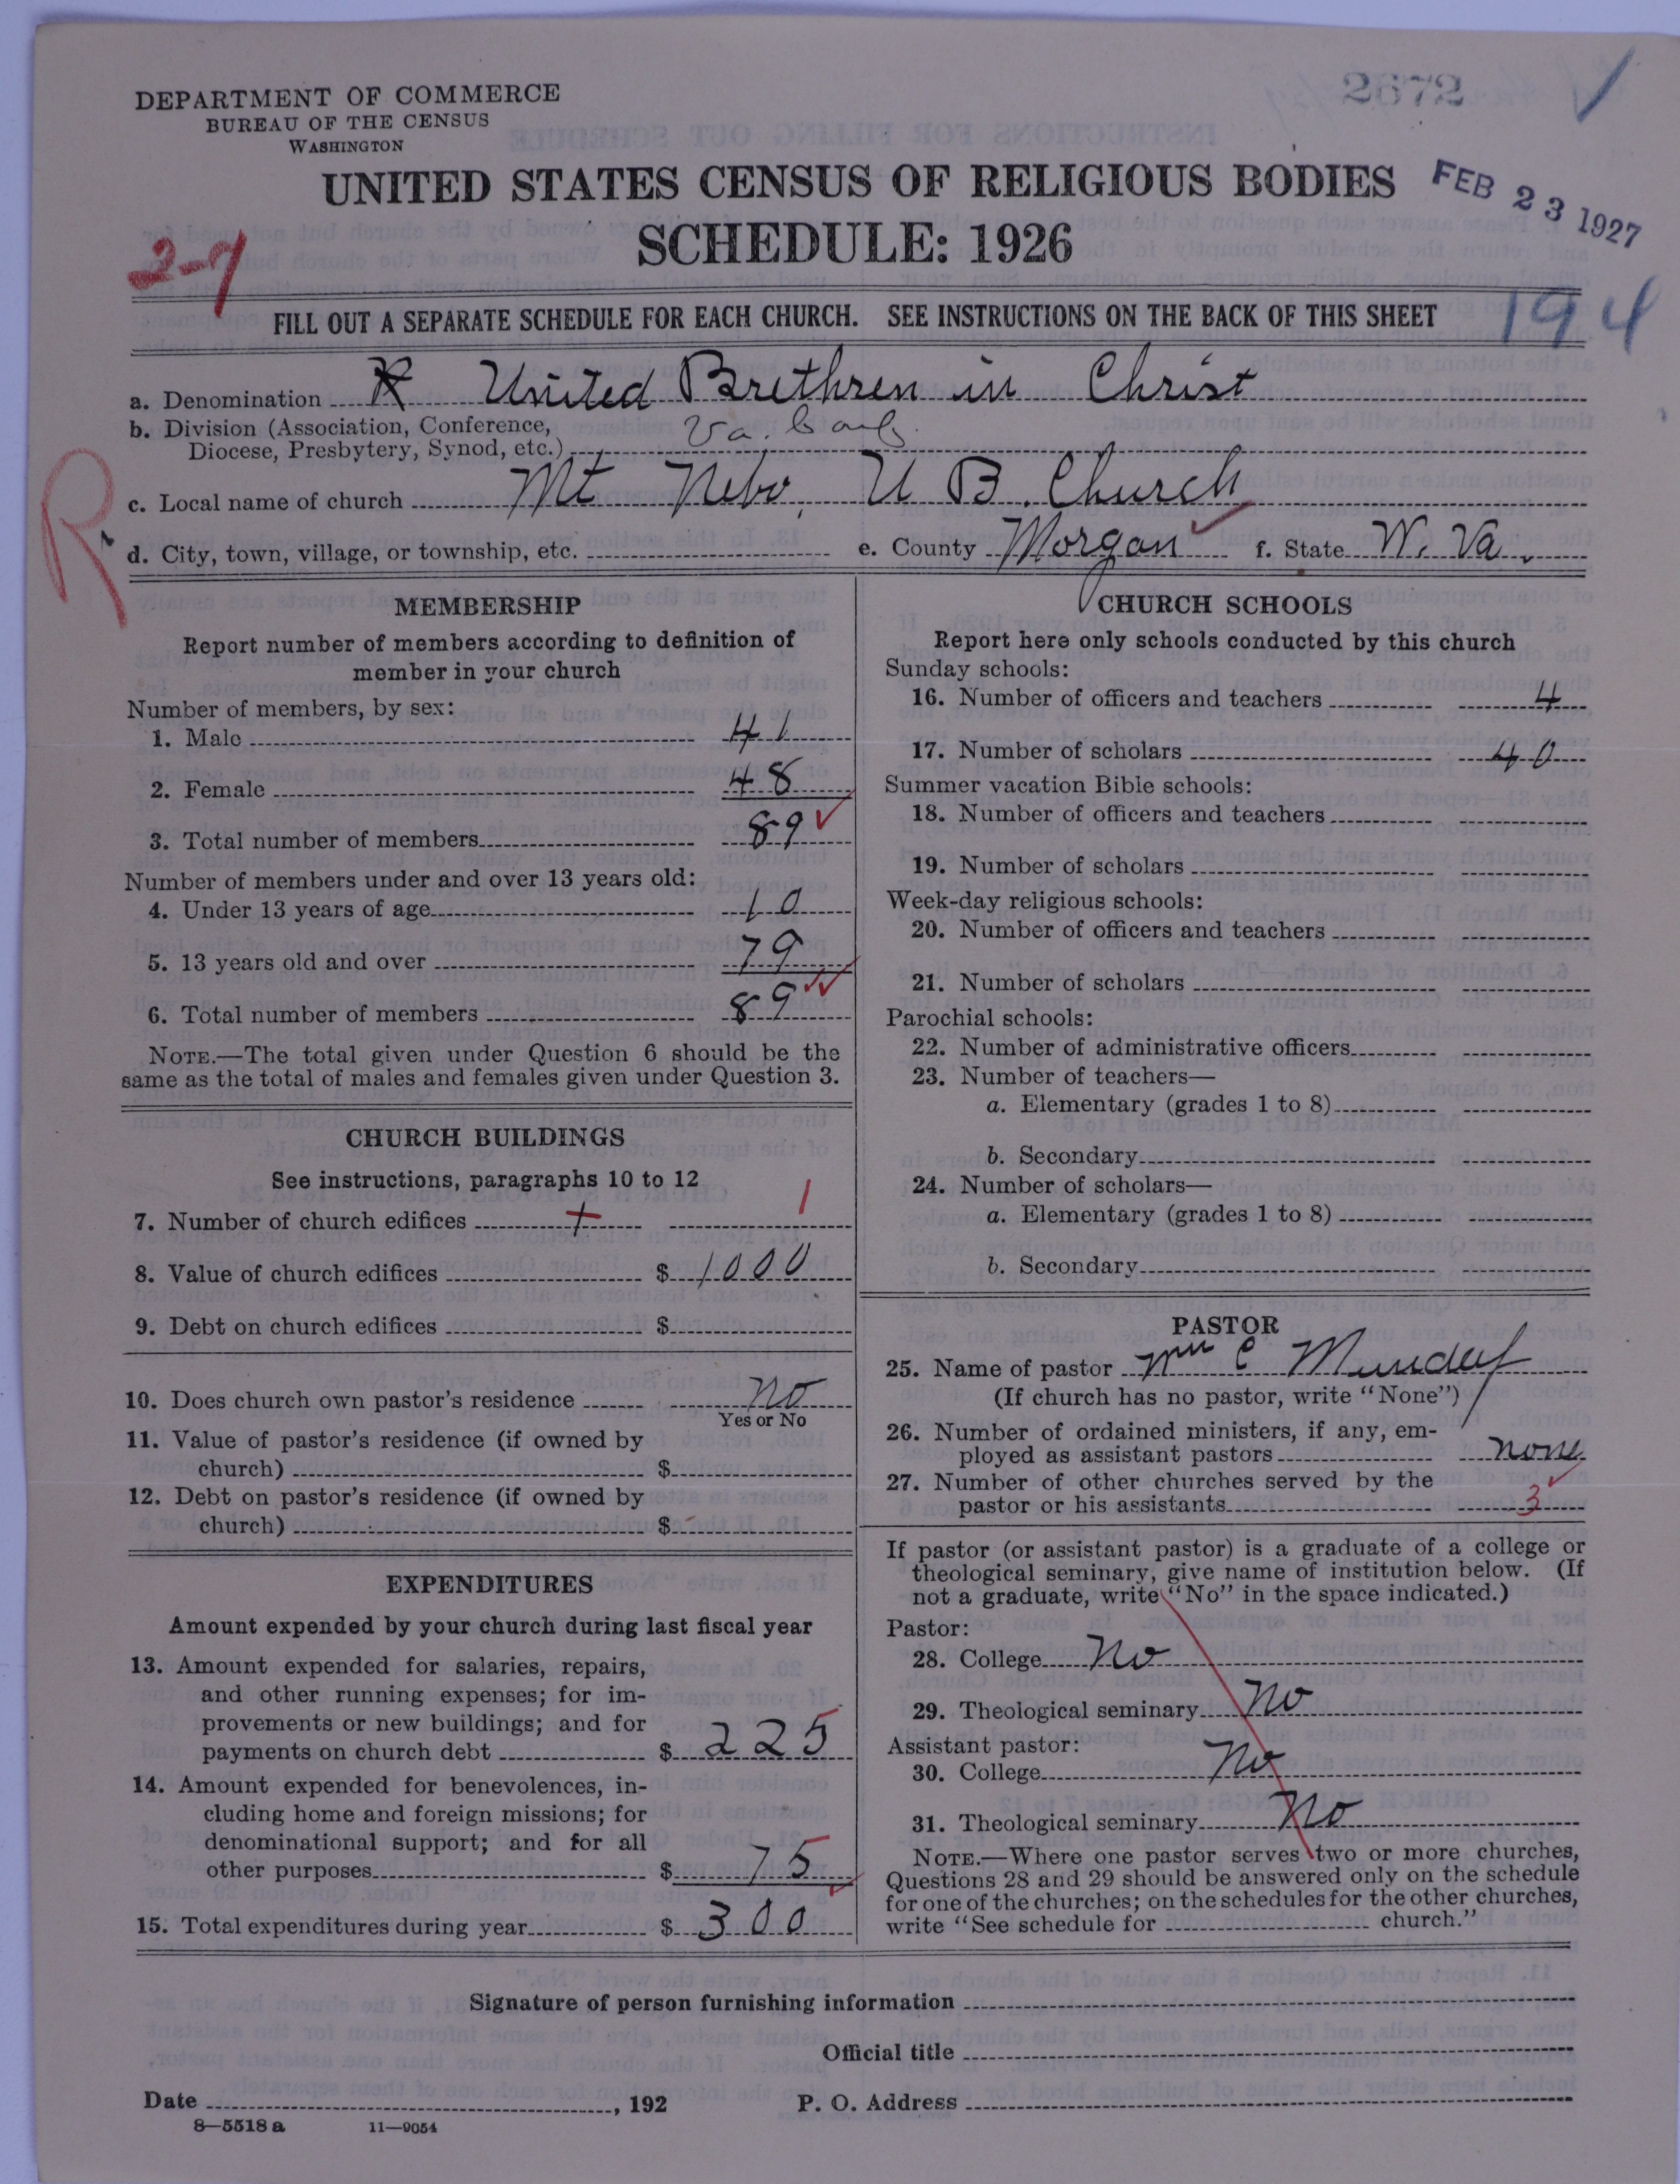 2672
DEPARTMENT OF COMMERCE
BUREAU OF THE CENSUS
WASHINGTON
UNITED STATES CENSUS OF RELIGIOUS BODIES
FEB 23 1927
SCHEDULE: 1926
FILL OUT A SEPARATE SCHEDULE FOR EACH CHURCH. SEE INSTRUCTIONS ON THE BACK OF THIS SHEET
194
a. Denomination United Brethren in Christ
b. Division (Association, Conference,
Diocese, Presbytery, Synod, etc.) Va. Conf.
c. Local name of church Mt Nebo U B. Church
R
d. City, town, village, or township, etc. e. County Morgan f. State W. Va.
MEMBERSHIP
Report number of members according to definition of
member in your church
Number of members, by sex:
1. Male 41
2. Female 48
3. Total number of members 89
Number of members under and over 13 years old:
4. Under 13 years of age 10
5. 13 years old and over 79
6. Total number of members 89
NOTE.—The total given under Question 6 should be the
same as the total of males and females given under Question 3.
CHURCH BUILDINGS
See instructions, paragraphs 10 to 12
7. Number of church edifices 1
8. Value of church edifices $ 1000
9. Debt on church edifices $
10. Does church own pastor's residence no
Yes or No
11. Value of pastor's residence (if owned by
church) $
12. Debt on pastor's residence (if owned by
church) $
EXPENDITURES
Amount expended by your church during last fiscal year
13. Amount expended for salaries, repairs,
and other running expenses; for im-
provements or new buildings; and for
payments on church debt $ 225
14. Amount expended for benevolences, in-
cluding home and foreign missions; for
denominational support; and for all
other purposes $ 75
15. Total expenditures during year $ 300
CHURCH SCHOOLS
Report here only schools conducted by this church
Sunday schools:
16. Number of officers and teachers 4
17. Number of scholars 40
Summer vacation Bible schools:
18. Number of officers and teachers
19. Number of scholars
Week-day religious schools:
20. Number of officers and teachers
21. Number of scholars
Parochial schools:
22. Number of administrative officers
23. Number of teachers—
a. Elementary (grades 1 to 8)
b. Secondary
24. Number of scholars—
a. Elementary (grades 1 to 8)
b. Secondary
PASTOR
25. Name of pastor Wm C
(If church has no pastor, write "None")
26. Number of ordained ministers, if any, em-
ployed as assistant pastors none
27. Number of other churches served by the
pastor or his assistants 3
If pastor (or assistant pastor) is a graduate of a college or
theological seminary, give name of institution below. (If
not a graduate, write "No" in the space indicated.)
Pastor:
28. College No
29. Theological seminary No
Assistant pastor:
30. College No
31. Theological seminary No
NOTE.—Where one pastor serves two or more churches,
Questions 28 and 29 should be answered only on the schedule
for one of the churches; on the schedules for the other churches,
write "See schedule for church."
Signature of person furnishing information
Official title
Date , 192 P. O. Address
8—5518 a 11—9054